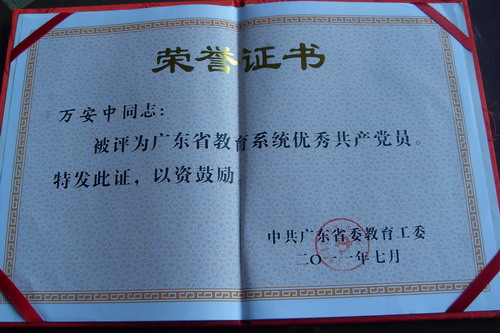 荣誉证书
万安中同志：
被评为广东省教育系统优秀共产党员。
特发此证，以资鼓励。
中共广东省委教育工委
二〇一一年七月